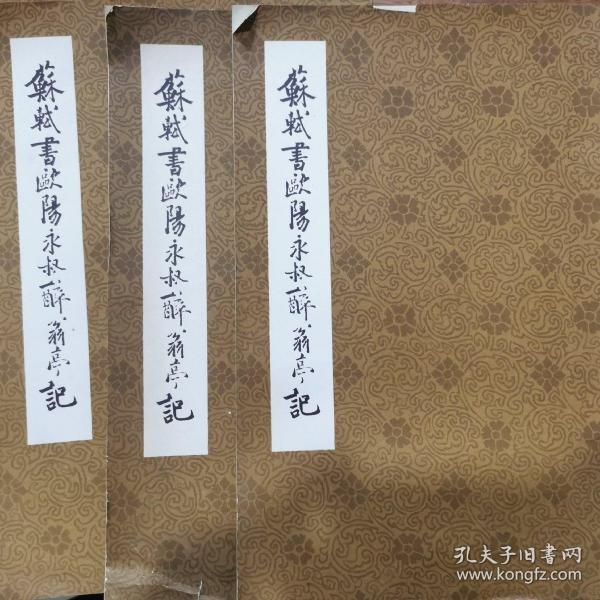 蘇軾書歐陽永叔醉翁亭記
蘇軾書歐陽永叔醉翁亭記
蘇軾書歐陽永叔醉翁亭記
孔夫子旧書网
www.kongfz.com